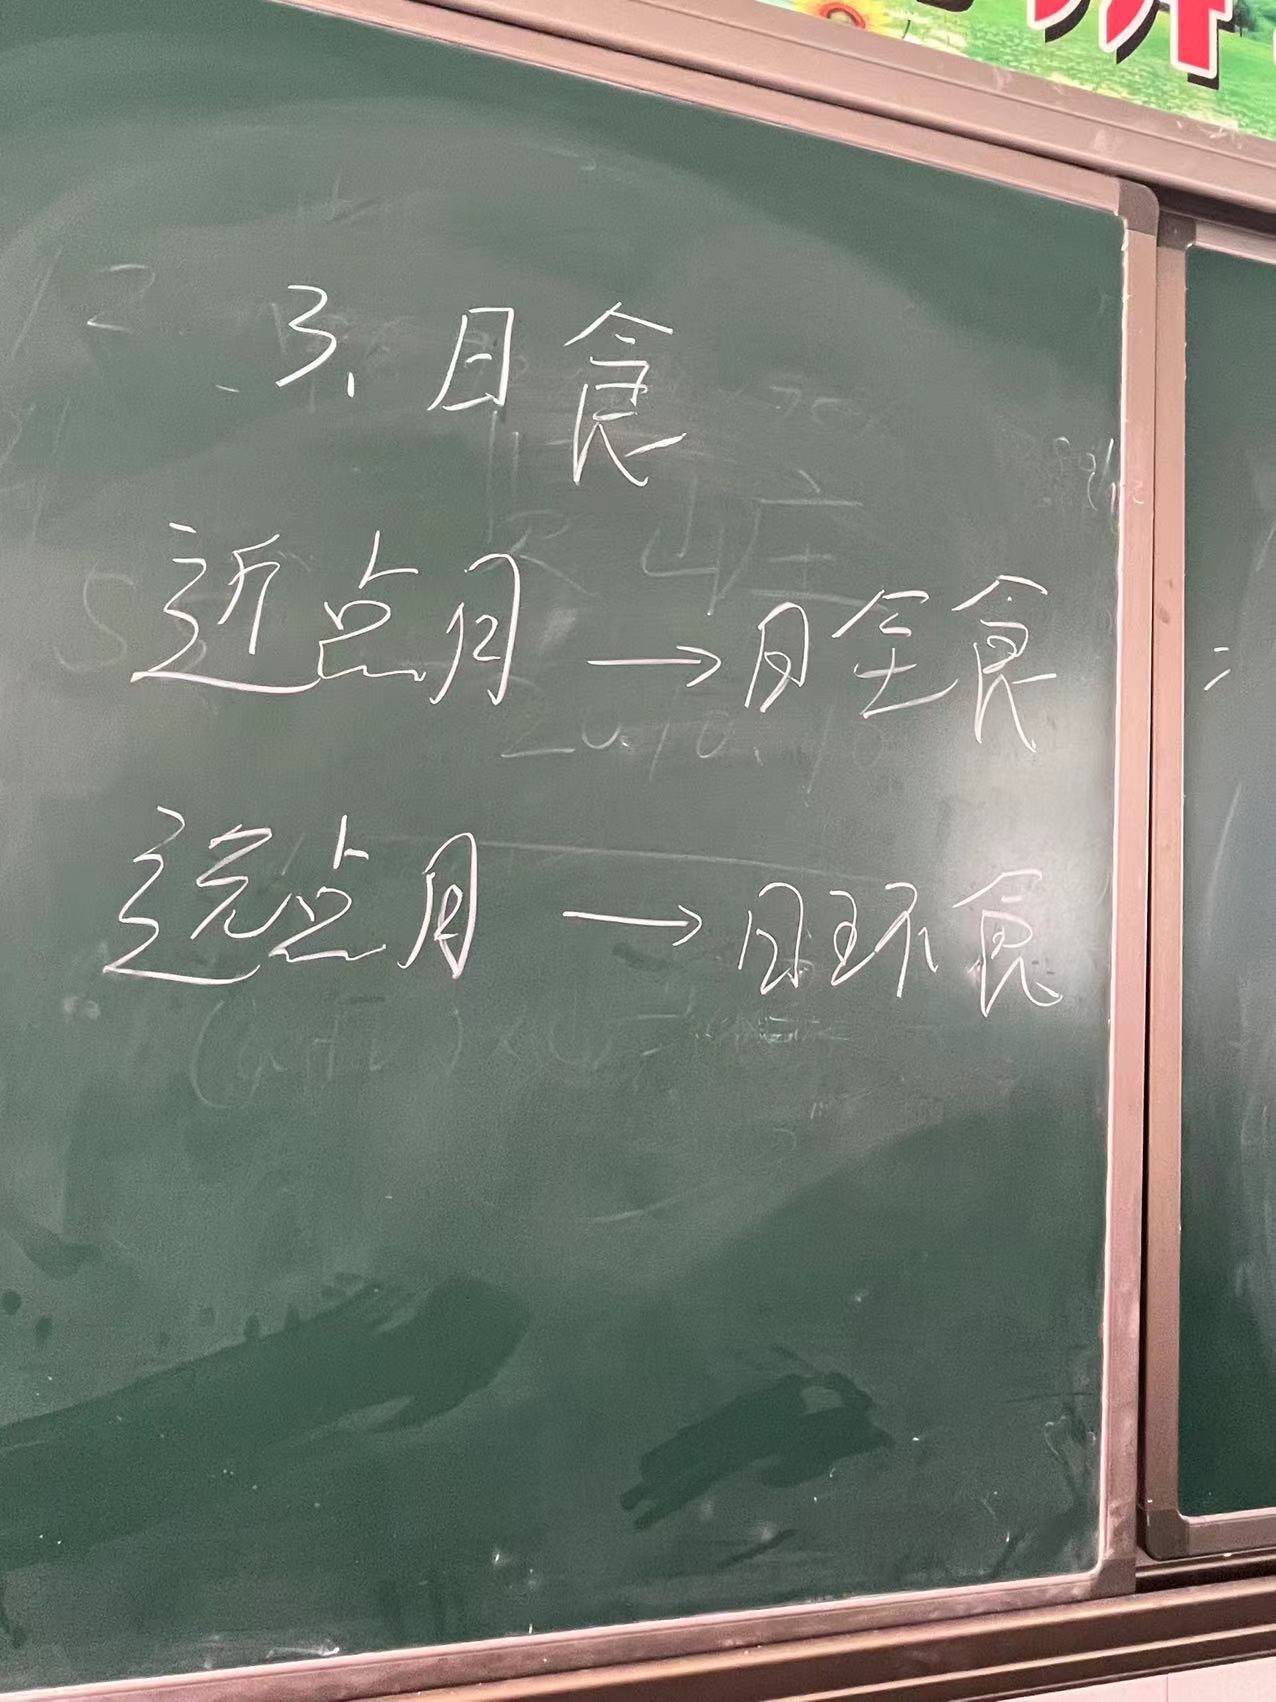 3、日食
近点月→日全食
远点月→日环食